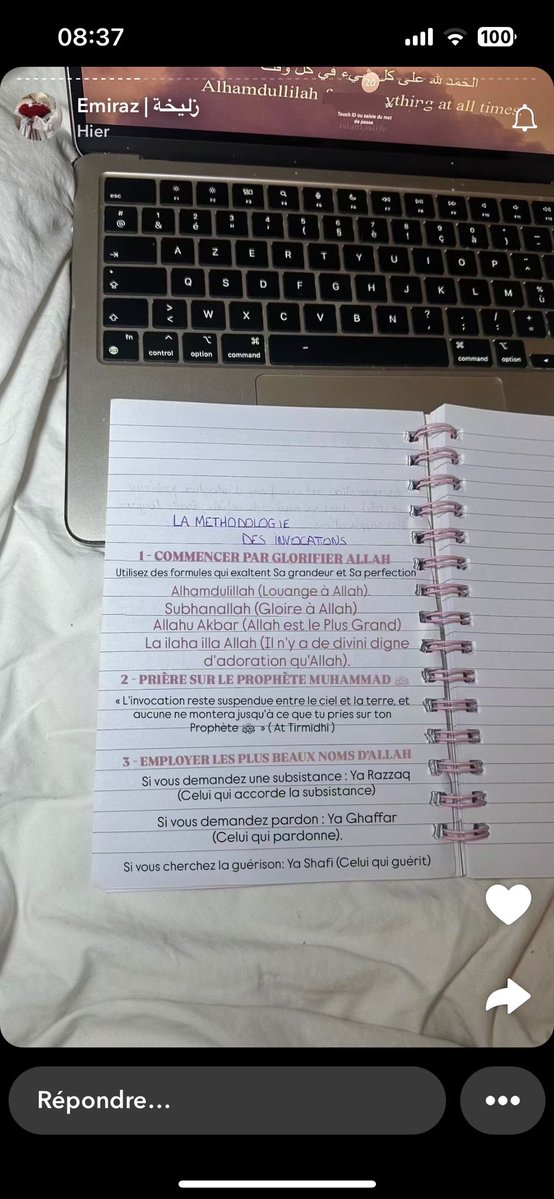 08:37
100
Emiraz | زليخة
Hier
الحمد لله على كل شيء في كل وقت
Alhamdullilah
ything at all times
ZO
Touch ID ou saisie du mot
de passe
esc
F1 F2 F3 F4 F5 F6 F7 F8 F9
# @ 1 & 2 é 3 " 4 ' 5 ( 6 § 7 è 8 ! 9 ç 0 à ° ) _ -
A Z E R T Y U I O P ¨ ^
Q S D F G H J K L M % ù
> < W X C V B N ? , . ; / : + =
fn control option command command option
LA METHODOLOGIE
DES INVOCATIONS
1 - COMMENCER PAR GLORIFIER ALLAH
Utilisez des formules qui exaltent Sa grandeur et Sa perfection
Alhamdulillah (Louange à Allah).
Subhanallah (Gloire à Allah)
Allahu Akbar (Allah est le Plus Grand)
La ilaha illa Allah (Il n'y a de divini digne
d'adoration qu'Allah).
2 - PRIÈRE SUR LE PROPHÈTE MUHAMMAD ﷺ
« L'invocation reste suspendue entre le ciel et la terre, et
aucune ne montera jusqu'à ce que tu pries sur ton
Prophète ﷺ » ( At Tirmidhi )
3 - EMPLOYER LES PLUS BEAUX NOMS D'ALLAH
Si vous demandez une subsistance : Ya Razzaq
(Celui qui accorde la subsistance)
Si vous demandez pardon : Ya Ghaffar
(Celui qui pardonne).
Si vous cherchez la guérison: Ya Shafi (Celui qui guérit)
Répondre…